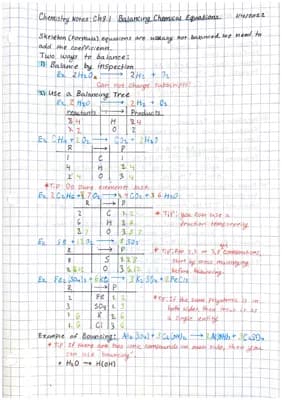 Chemistry Notes: Ch8.1 Balancing Chemical Equations
Skeleton (formula) equations are usually not balanced we need to
add the coefficients.
Two ways to balance:
1) Balance by inspection
Ex. 2H₂O₂ → 2H₂ + O₂
Can not change subscripts!
2) Use a Balancing Tree
Ex. 2 H₂O → 2 H₂ + O₂
reactants → Products
2 4 H 2 4
1 2 O 2
Ex. CH₄ + 2O₂ → CO₂ + 2H₂O
R → P
1 C 1
4 H 2 4
2 4 O 3 4
*Tip: Do pure elements last
R → P
2 C
6 H
2 O
*Tip: you can use a
fraction temporarily.
Ex. S8 + 12O₂ → 8SO₃
R → P
8 S
O
*Tip: For combinations,
start by cross multiplying
before balancing.
R → P
2 Fe
3 SO₄
K
Cl
*Tip: If the same polyatomic is in
both sides, then treat it as
a single entity.
Example of Bouncing: Al₂(SO₄)₃ + 3Ca(OH)₂ → 2Al(OH)₃ + 3CaSO₄
*Tip: If there are two ionic compounds on each side, then you
can use "bouncing"
* H₂O → H(OH)